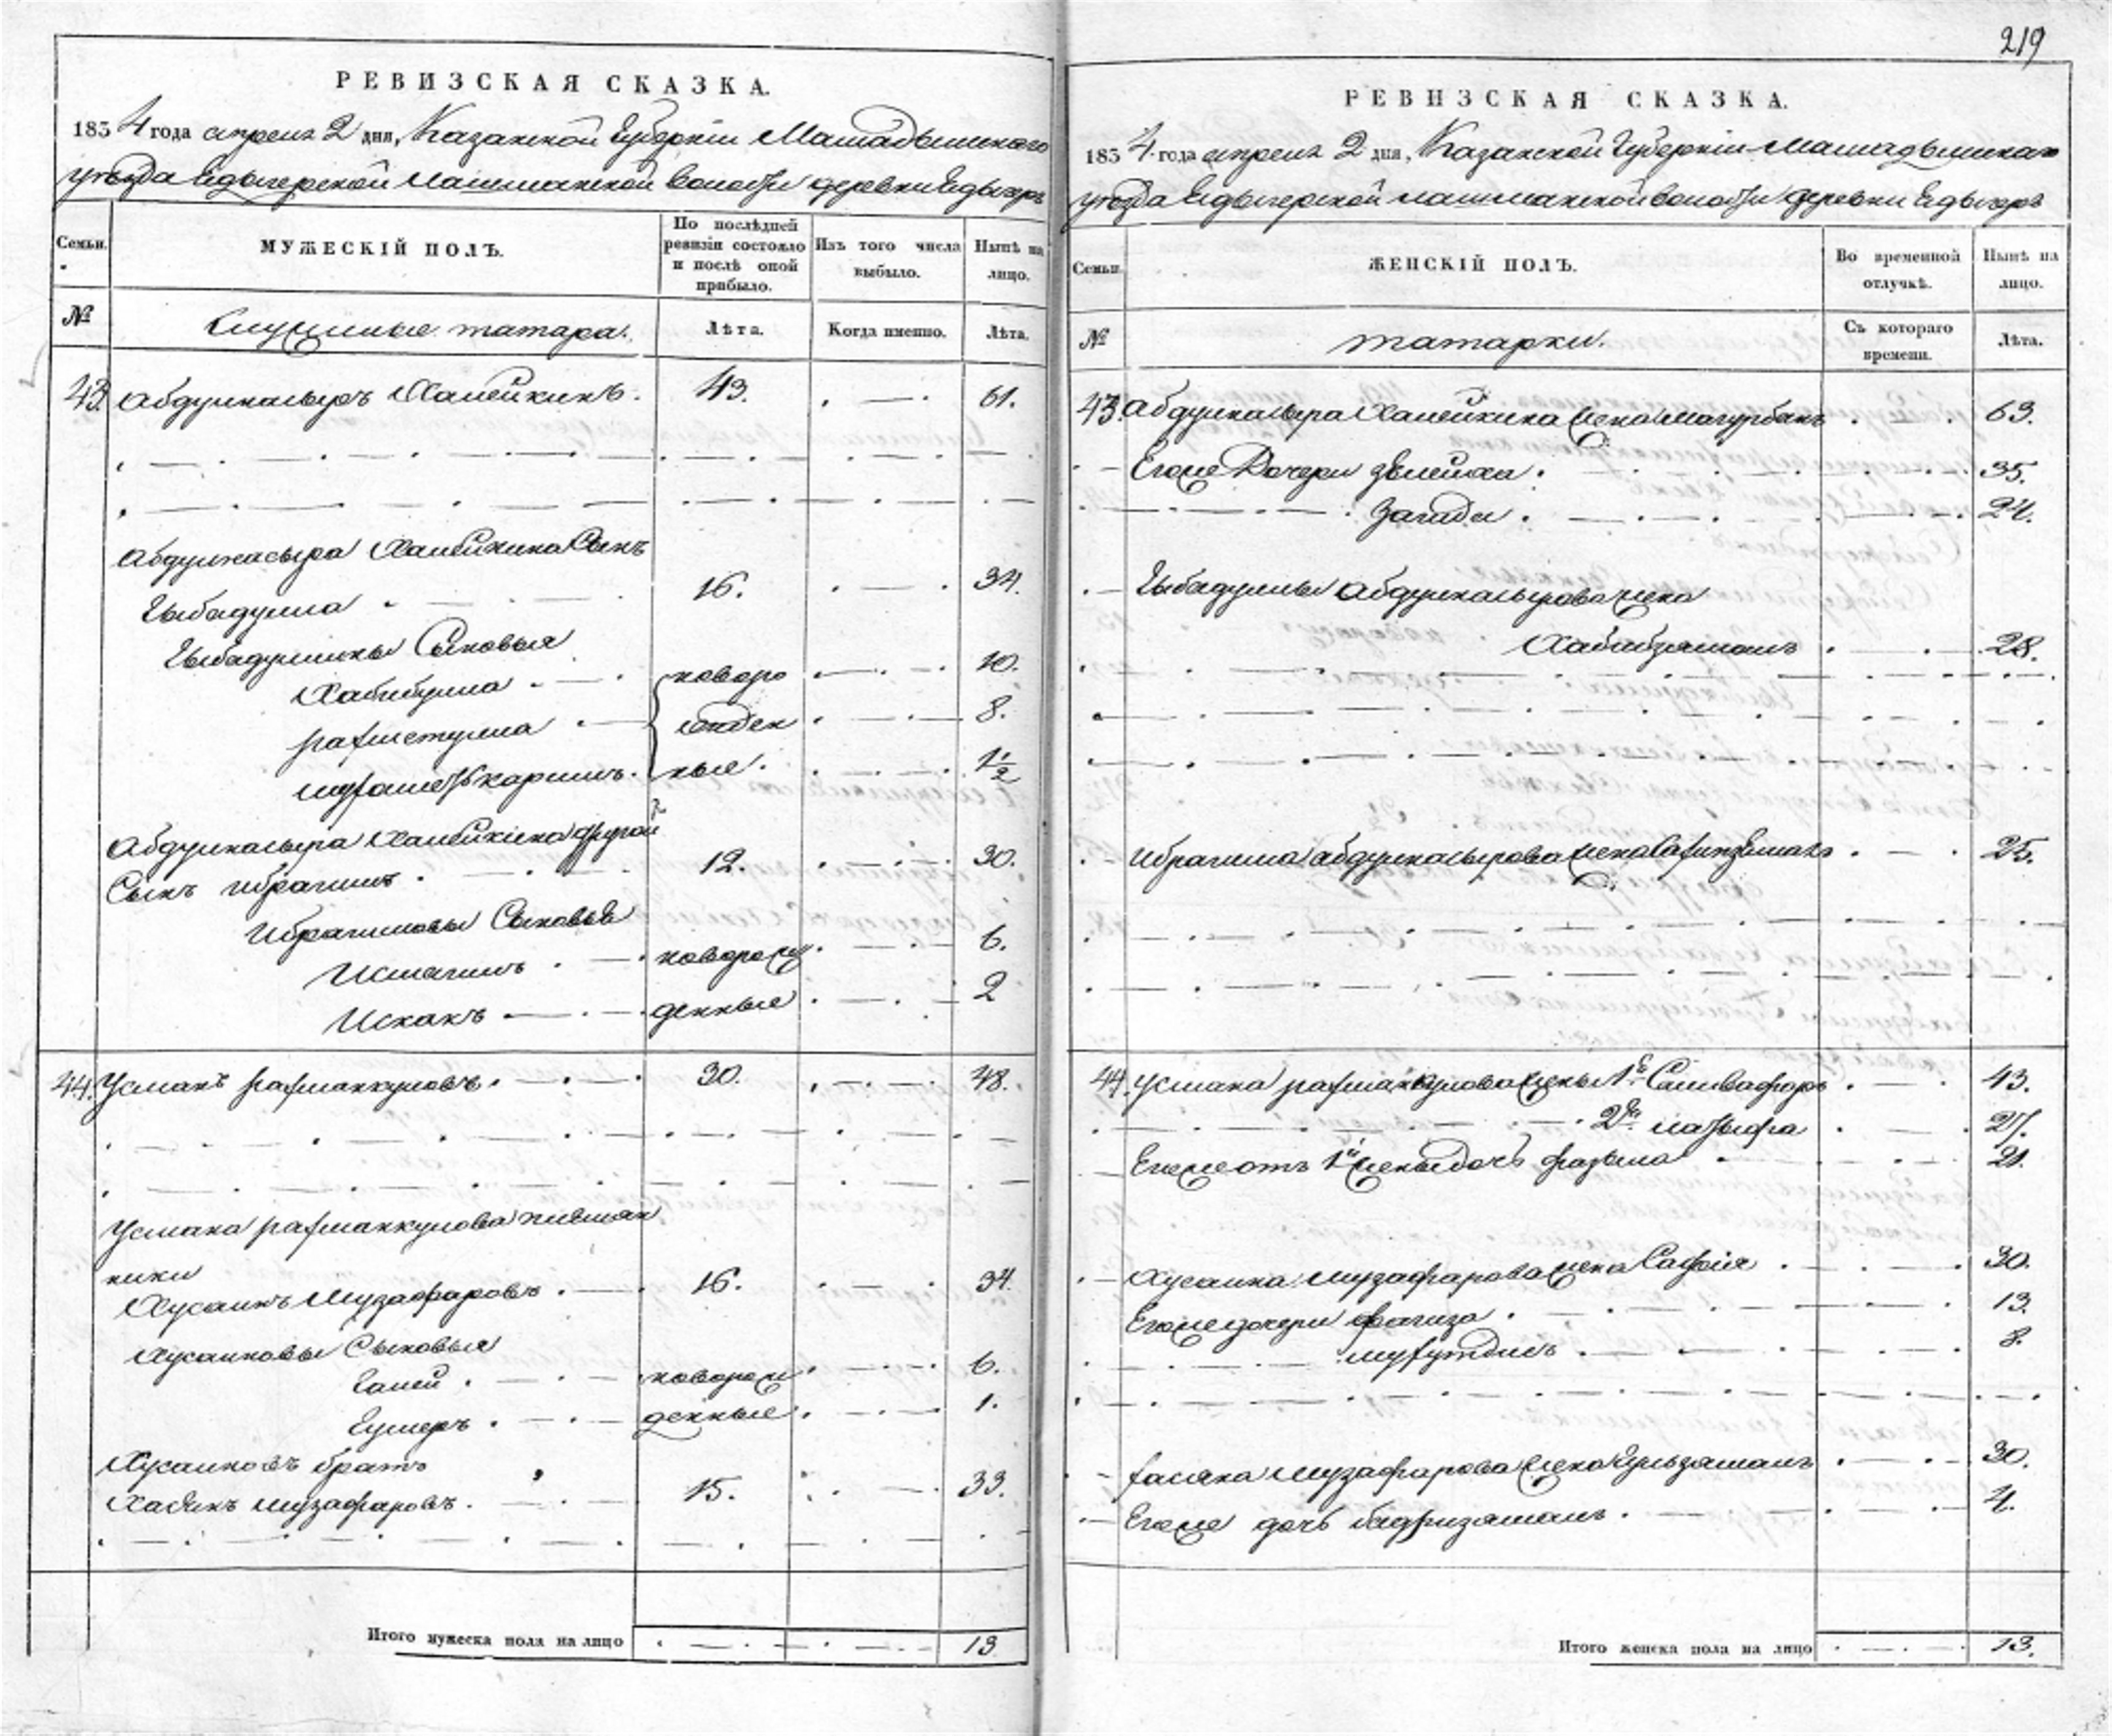 РЕВИЗСКАЯ СКАЗКА.
1834 года апреля 2 дня, Казанской Губерніи Мамадышскаго
уѣзда Едыгерской лашманской волости деревни Едыгеръ
Семьи. МУЖЕСКІЙ ПОЛЪ. По послѣдней ревизіи состояло и послѣ оной прибыло. Изъ того числа выбыло. Нынѣ на лицо.
№ Служилые татара. Лѣта. Когда именно. Лѣта.
43. Абдулнасыръ Халейкинъ. 43. 61.
Абдулнасыра Халейкина Сынъ
Гыбадулла 16. 34.
Гыбадуллины Сыновья
Хабибулла новоро 10.
рахметулла жден 8.
мухаметькаримъ. ные. 1 1/2
Абдулнасыра Халейкина другой
Сынъ ибрагимъ 12. 30.
Ибрагимовы Сыновья
Исмагилъ новорож 6.
Исхакъ денные 2
44. Усманъ рахманкуловъ. 30. 48.
Усмана рахманкулова племян
ники
Хусаинъ Музафаровъ 16. 34.
Хусаиновы Сыновья
Галей новорож 6.
Гумеръ денные 1.
Хусаиновъ братъ
Хасянъ музафаровъ. 15. 33.
Итого мужеска пола на лицо 13
219
РЕВИЗСКАЯ СКАЗКА.
1834 года апреля 2 дня, Казанской Губерніи Мамадышскаго
уѣзда Едыгерской лашманской волости деревни Едыгеръ
Семьи. ЖЕНСКІЙ ПОЛЪ. Во временной отлучкѣ. Нынѣ на лицо.
№ татарки. Съ котораго времени. Лѣта.
43. Абдулнасыра Халейкина жена Магурбанъ 63.
Егоже Дочери Зюлейха 35.
Загида 24.
Гыбадуллы Абдулнасырова жена
Хабибзямалъ 28.
Ибрагима абдулнасырова жена 25.
44. Усмана рахманкулова жены 1я 43.
2я 27.
Егожеотъ 1й жены дочь фазыла 21.
Хусаина музафарова жена Сафія 30.
Егоже дочери фагиза 13.
8.
Хасяна музафарова жена Гульзямалъ 30.
Егоже дочь бадризямалъ 4.
Итого женска пола на лицо 13.